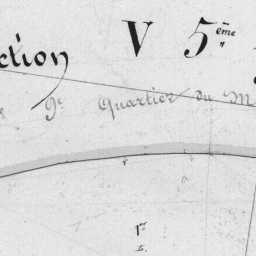 ction V 5ème
9e Quartier du M
1r